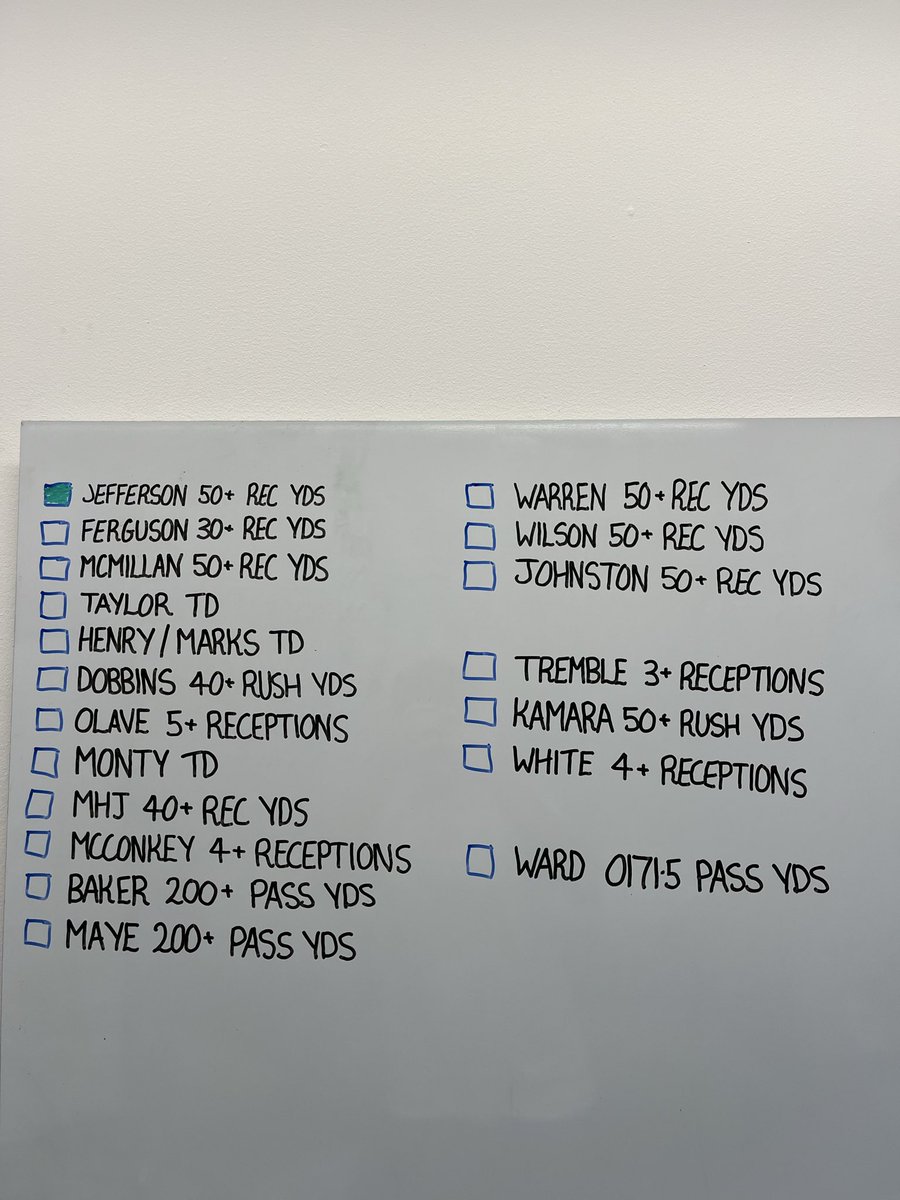 JEFFERSON 50+ REC YDS
FERGUSON 30+ REC YDS
MCMILLAN 50+ REC YDS
TAYLOR TD
HENRY/MARKS TD
DOBBINS 40+ RUSH YDS
OLAVE 5+ RECEPTIONS
MONTY TD
MHJ 40+ REC YDS
MCCONKEY 4+ RECEPTIONS
BAKER 200+ PASS YDS
MAYE 200+ PASS YDS
WARREN 50+ REC YDS
WILSON 50+ REC YDS
JOHNSTON 50+ REC YDS
TREMBLE 3+ RECEPTIONS
KAMARA 50+ RUSH YDS
WHITE 4+ RECEPTIONS
WARD O171.5 PASS YDS